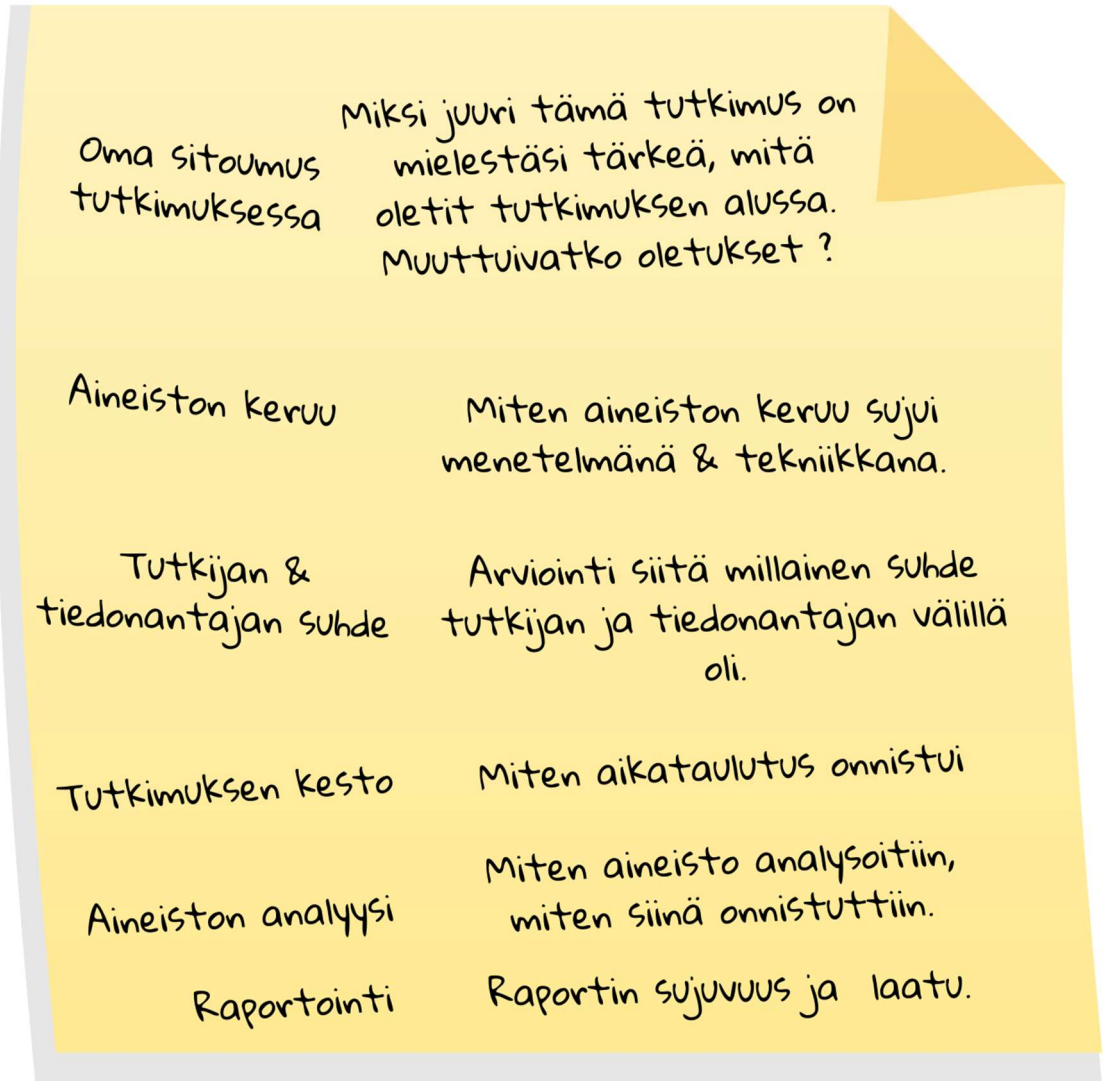 Oma sitoumus
tutkimuksessa
Miksi juuri tämä tutkimus on
mielestäsi tärkeä, mitä
oletit tutkimuksen alussa.
Muuttuivatko oletukset ?
Aineiston keruu
Miten aineiston keruu sujui
menetelmänä & tekniikkana.
Tutkijan &
tiedonantajan suhde
Arviointi siitä millainen suhde
tutkijan ja tiedonantajan välillä
oli.
Tutkimuksen kesto
Miten aikataulutus onnistui
Aineiston analyysi
Miten aineisto analysoitiin,
miten siinä onnistuttiin.
Raportointi
Raportin sujuvuus ja laatu.